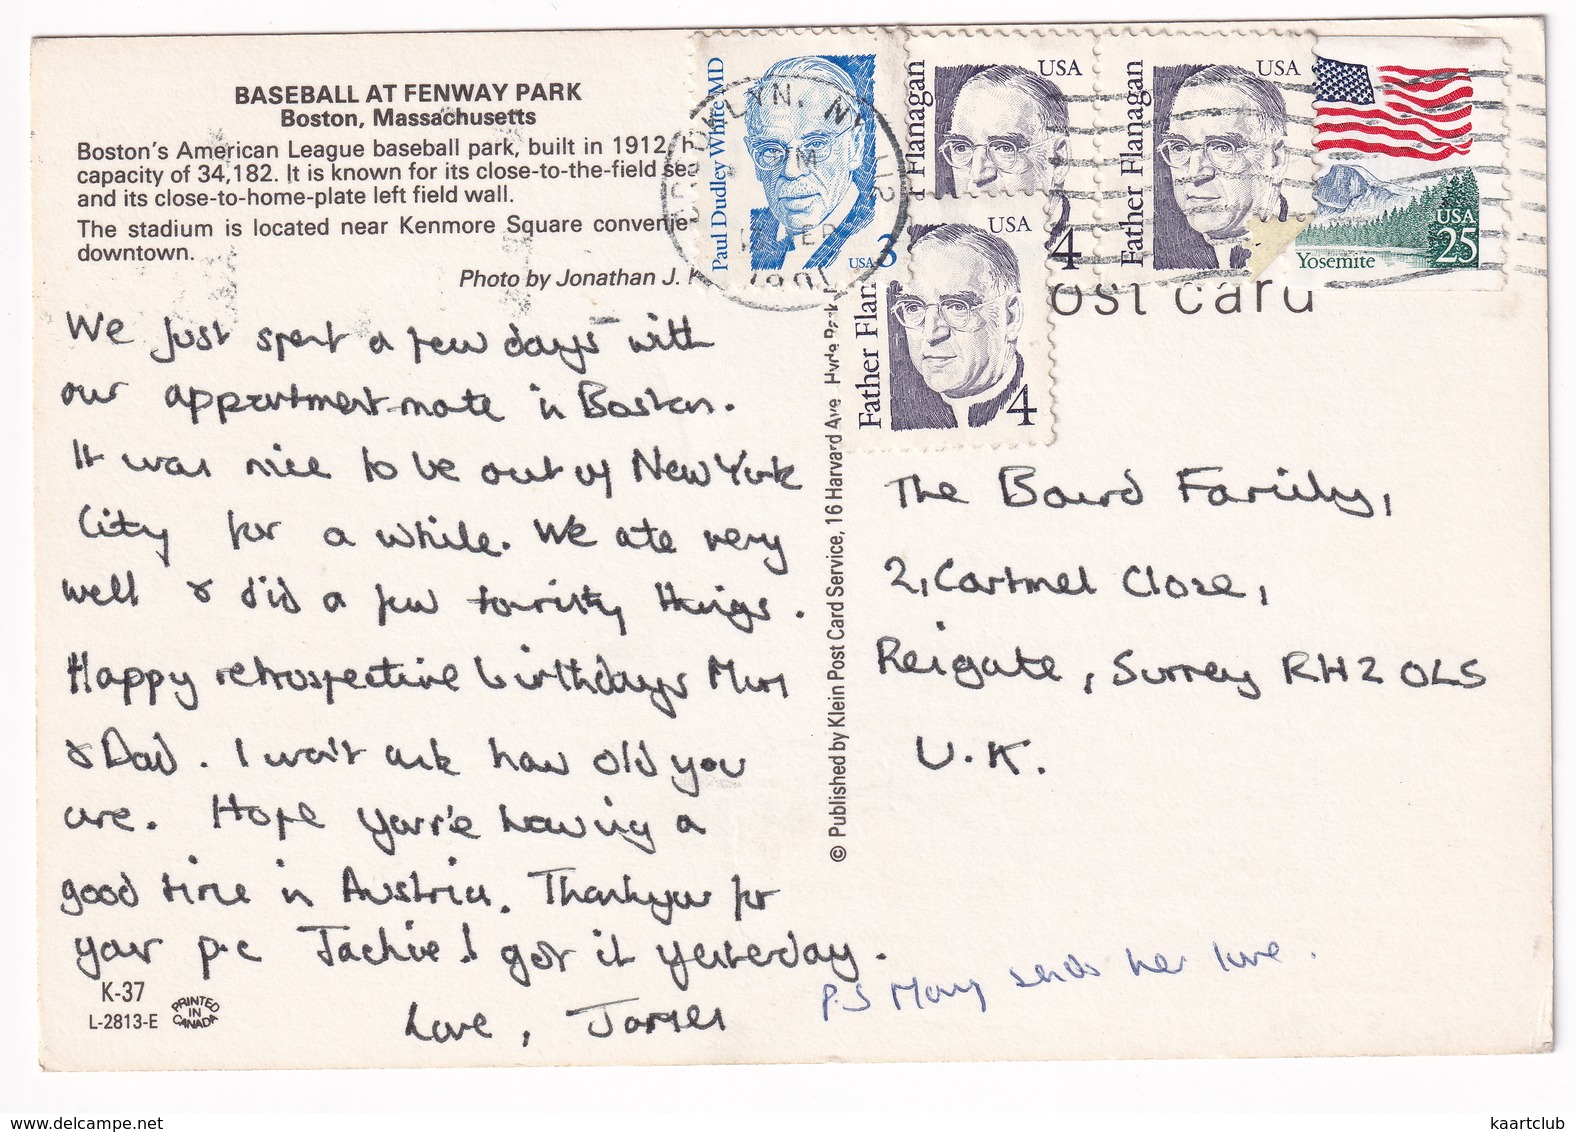 BASEBALL AT FENWAY PARK
Boston, Massachusetts
Boston's American League baseball park, built in 1912, h
capacity of 34,182. It is known for its close-to-the-field sea
and its close-to-home-plate left field wall.
The stadium is located near Kenmore Square convenie
downtown.
Photo by Jonathan J. K
We just spent a few days with
our appartment-mate in Boston.
It was nice to be out of New York
City for a while. We ate very
well & did a few touristy things.
Happy retrospective birthdays Mum
& Dad. I won't ask how old you
are. Hope you're having a
good time in Austria. Thankyou for
your p.c Jackie! I got it yesterday.
Love, James
P.S Mary sends her love.
K-37
L-2813-E
PRINTED
IN
CANADA
© Published by Klein Post Card Service, 16 Harvard Ave., Hyde Park
Paul Dudley White MD
USA 3
Flanagan
USA
4
Father Flanagan
USA
Father Flan
USA
4
Yosemite
USA
25
BROOKLYN, NY 112
PM
SEP
1991
ost card
The Baird Family,
2, Cartmel Close,
Reigate, Surrey RH2 0LS
U.K.
kaartclub